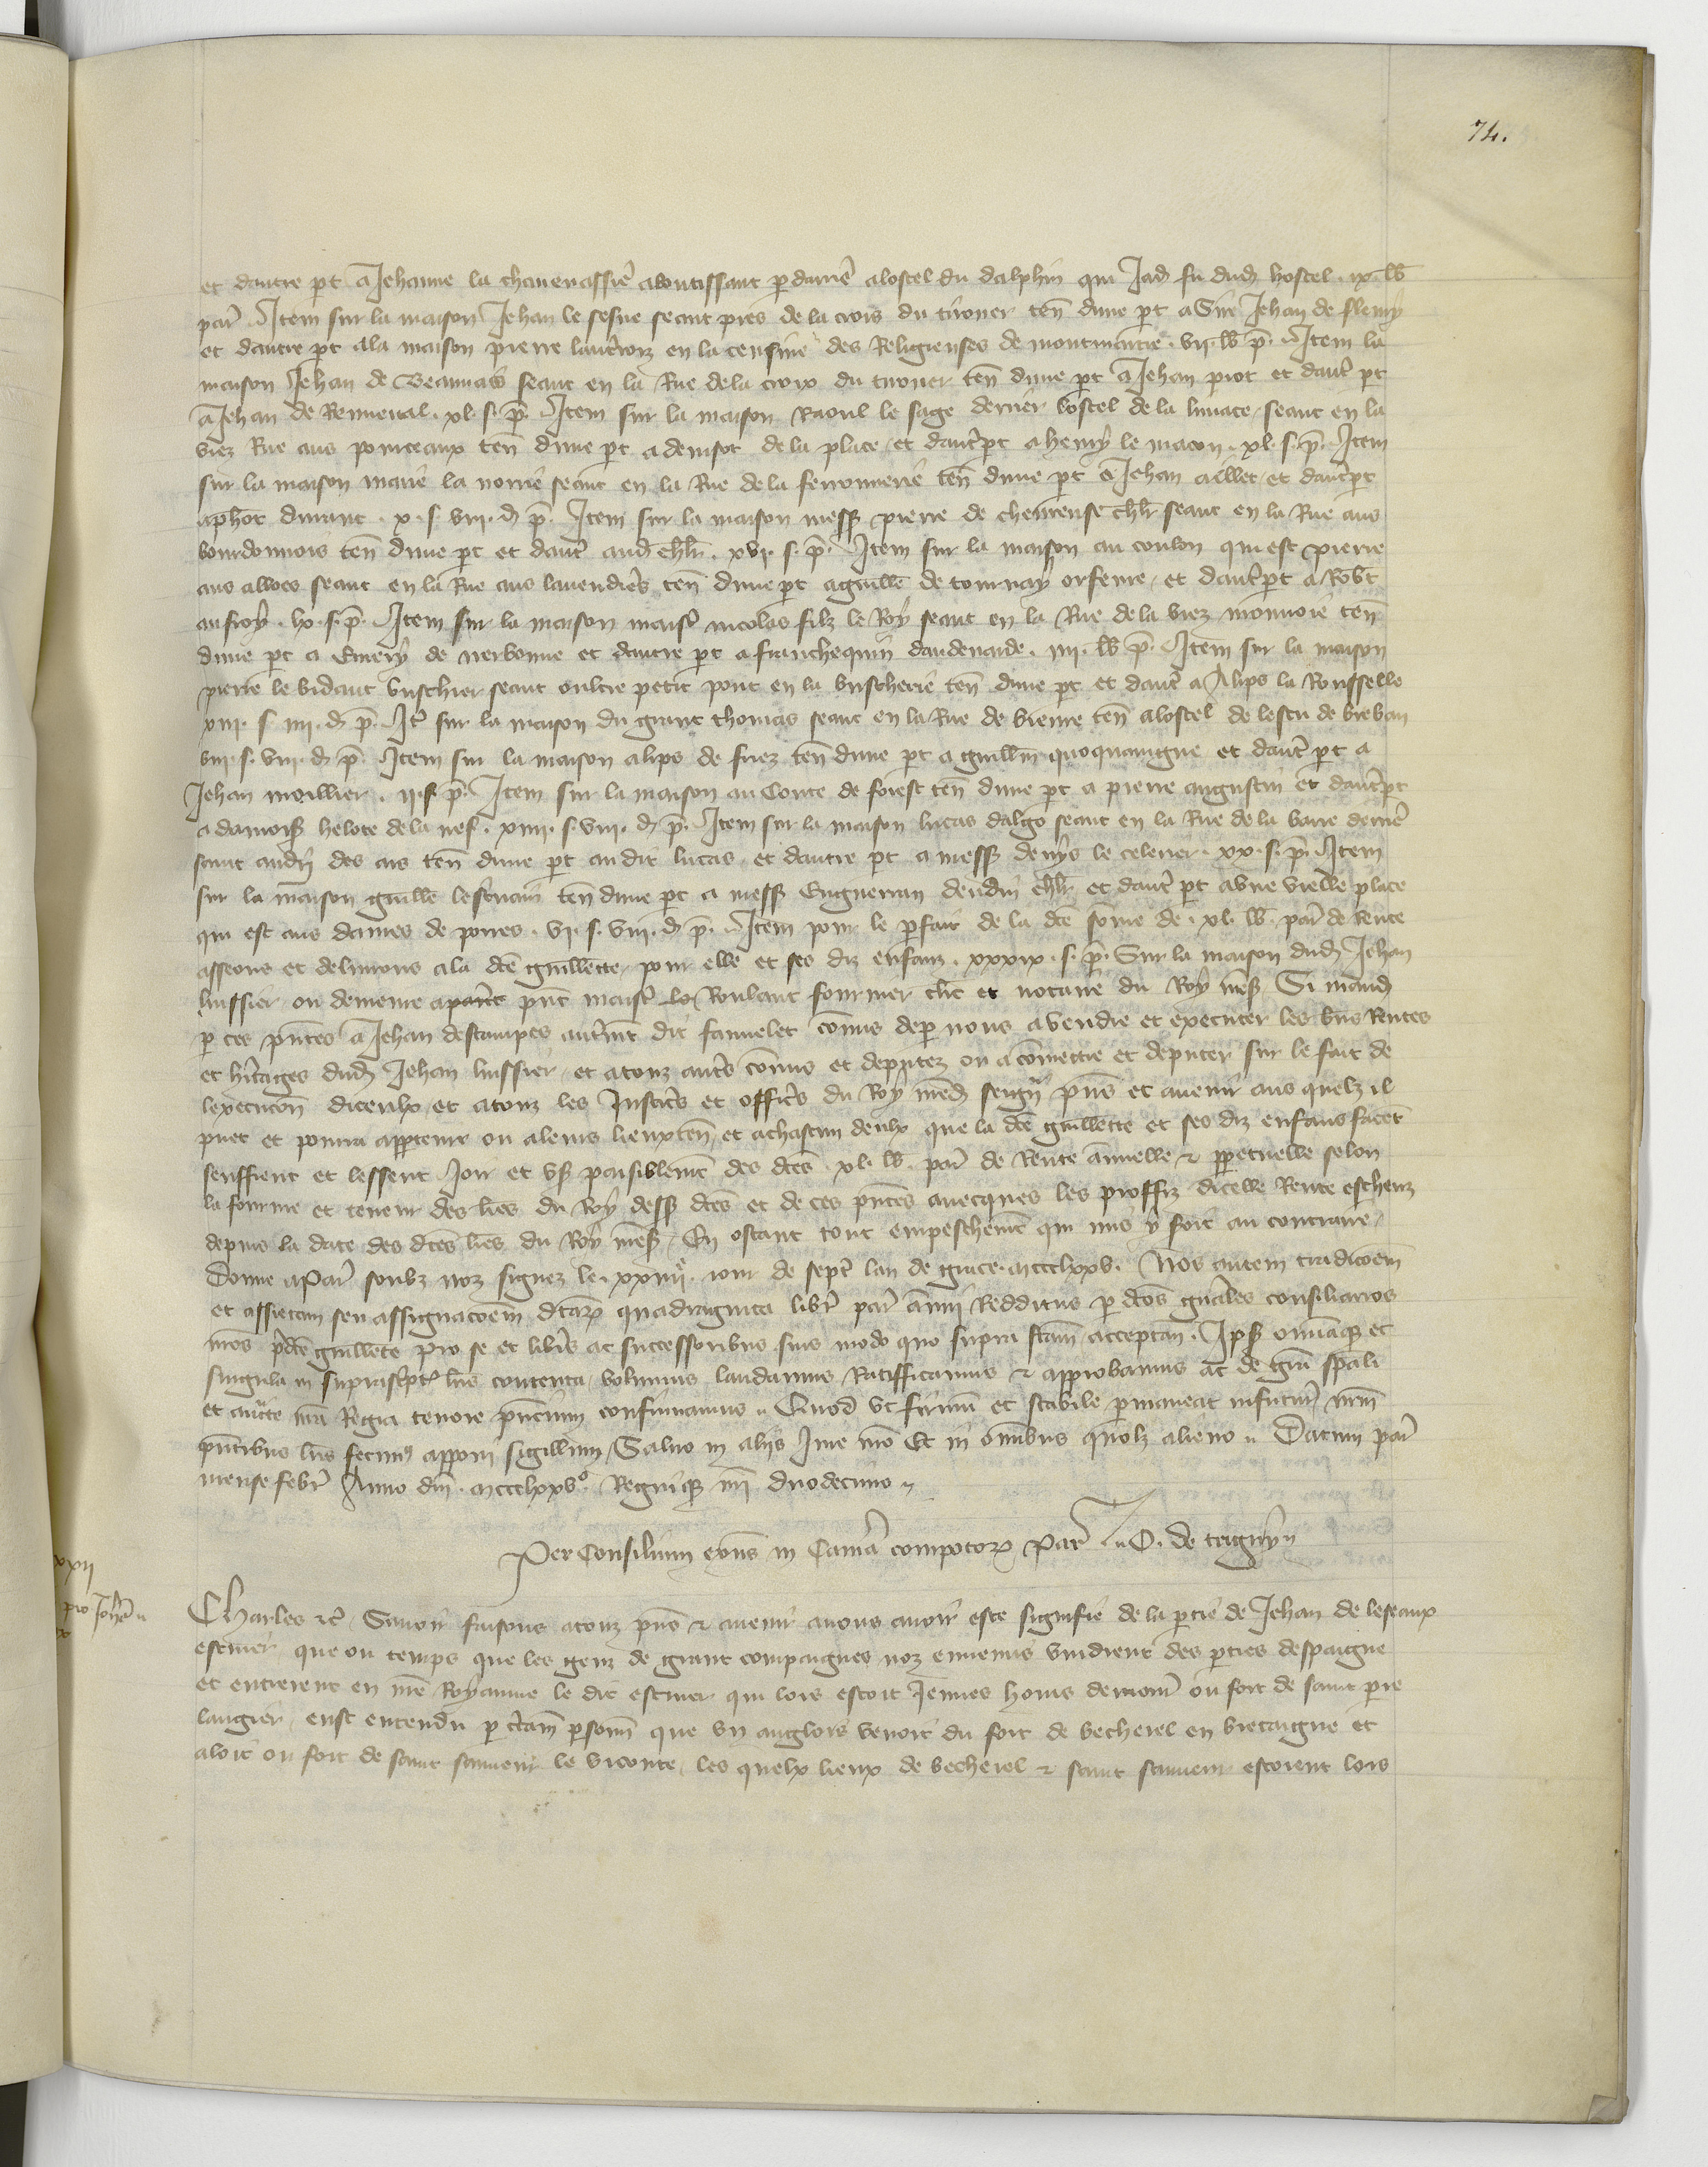 74.
et dautre p̱t a Jehanne la chanevassiē aboutissant p̱ darrie a lostel du dalphin qui Jad̄ fu dud̄ hostel . ix . lb
par̄ . Item sur la maison Jehan le sesne seant pres de la crois du tirouer ten̄ dune p̱t a Sire Jehan de fleury
et dautre p̱t a la maison pierre en la censive des Religieuses de montmartre . vii . lb p̄ . Item la
maison Jehan de Beauvais seant en la Rue de la croix du tirouer ten̄ dune p̱t a Jehan piot et daut̄ p̱t
a Jehan de Remeral . xl . s . p̄ . Item sur la maison Raoul le sage derrier lostel de la limace seant en la
viez Rue aus ponceaux ten̄ dune p̱t a denisot de la place et daut̄ p̱t a henry le macon . xl . s . p̄ . Item
sur la maison marie la norrie seant en la Rue de la ferronnerie ten̄ dune p̱t a Jehan aillet et daut̄ p̱t
a ph̄ot durant . x . s . viii . d̄ p̄ . Item sur la maison mess̄ pierre de cheureuse ch̄lr seant en la Rue aus
bourdonnois ten̄ dune p̱t et daut̄ aud̄ ch̄lr . xvi . s . p̄ . Item sur la maison au coulon qui est pierre
aus alloes seant en la Rue aus lavendier̄s ten̄ dune p̱t a guill̄e de tournay orfevre et daut̄ p̱t a Rob̄t
aufroy . lx . s . p̄ . Item sur la maison maist̄ nicolas filz le Roy seant en la Rue de la viez monnoie ten̄
dune p̱t a Emery de nerbonne et dautre p̱t a franchequin daudenarde . iiii . lb p̄ . Item sur la maison
pierre le bidaut buschier seant oultre petit pont en la buscherie ten̄ dune p̱t et daut̄ a Alips la Rousselle
xiii . s . iiii . d̄ p̄ . It̄ sur la maison du grant thomas seant en la Rue de bievre ten̄ a lostel de lescu de breban
viii . s . viii . d̄ p̄ . Item sur la maison alips de fuez ten̄ dune p̱t a guill̄m quoquaingne et daut̄ p̱t a
Jehan moillier . ii . s . p̄ . Item sur la maison au Conte de forest ten̄ dune p̱t a pierre augustin et daut̄ p̱t
a damois̄ helote de la nef . xiiii . s . viii . d̄ p̄ . Item sur la maison lucas dalgo seant en la Rue de la barre derriē
saint andrī des ars ten̄ dune p̱t au dit lucas et dautre p̱t a mess̄ denys le celerier . xx . s . p̄ . Item
sur la maison guill̄e lescrivain ten̄ dune p̱t a mess̄ Enguerran deudin ch̄lr et daut̄ p̱t a une vielle place
qui est aus dames de pores . vi . s . viii . d̄ p̄ . Item pour le p̱fait de la dc̄e som̄e de . xl . lb . par̄ de Rente
asseons et delivrons a la dc̄e guillem̄ete pour elle et ses diz enfanz . xxxix . s . p̄ . Sur la maison dud̄ Jehan
luissier ou demeure a pnt̄ maist̄ Roulant fournier clc̄ et notaire du Roy nr̄es̄ Si mand̄
p̱ ces pn̄tes a Jehan destampes aut̄mt̄ dit fauvelet com̄is de p̱ nous a vendre et executer les biens Rentes
et hīt̄ages dud̄ Jehan luissier et a touz aut̄s com̄is et deputez ou a com̄ettre et deputer sur le fait de
lexecuc̄on diceulx et a touz les Justic̄rs et offic̄rs du Roy nr̄ed̄ seign̄r pn̄s et avenir aus quelz il
puet et pourra app̱tenir ou a leurs lieuxten̄ et a chascun deulx que la dc̄e guillem̄ete et ses diz enfans facent
seuffrent et lessent Joir et us̄ paisiblem̄t des dc̄es . xl . lb . par̄ de Rente annuelle ⁊ p̱petuelle selon
la fourme et teneur des lr̄es du Roy dess̄ dc̄es et de ces pn̄tes avecques les proffiz dicelle Rente escheuz
depuis la date des dc̄es lr̄es du Roy nr̄es̄ En ostant tout empeschem̄t qui mis y soit au contraire
Donne a Par̄ soubz noz signez le . xxiiii͏ͤ . iour de sept̄ lan de grace . mccclxxv . Nos autem tradic̄oem̄
et assietam seu assignac̄oem̄ dc̄ar̄ quadraginta libr̄ par̄ annui Redditus p̱ dc̄os gn̄ales consiliarios
nr̄os p̄dc̄e guillem̄ete pro se et lib̄is ac successoribus suis modo quo supra fc̄am acceptan̄ . Ips̄ om̄iaq̄ et
singula in suprascript̄ lr̄is contenta volumus laudamus Ratifficamus ⁊ approbamus ac de grā sp̄ali
et auc̄te nr̄a Regia tenore pn̄cium confirmamus .. Quod ut firmū et stabile p̱maneat in futurū nr̄m̄
pn̄tibus lr̄is fecim̄ apponi sigillum Salvo in aliis Jure nr̄o Et in om̄ibus quolz alieno .. Datum par̄
mense febr̄ Anno dn̄i . mccclxxv͏ͦ . Regniq̄ nr̄i duodecimo ..
Per Consilium exn̄s in Cam̄a compotor̄ Par̄ .. O . de trigny ..
pro Joh̄e ..
Charles ⁊c̄ Savoir faisons a touz pn̄s ⁊ avenir a nous avoir este signifie de la p̱tie de Jehan de leseaux
escuier que ou temps que les genz de grant compaignes noz ennemis vindrent des p̱ties despaigne
et entrerent en nr̄e Royaume le dit escuier qui lors estoit Jeunes homs demour̄ ou fort de saint p̱re
langier eust entendu p̱ c̄tain p̱som̄ que un anglois venoit du fort de becherel en bretaigne et
aloit ou fort de saint sauveur le viconte les quelx lieux de becherel ⁊ saint sauveur estoient lors